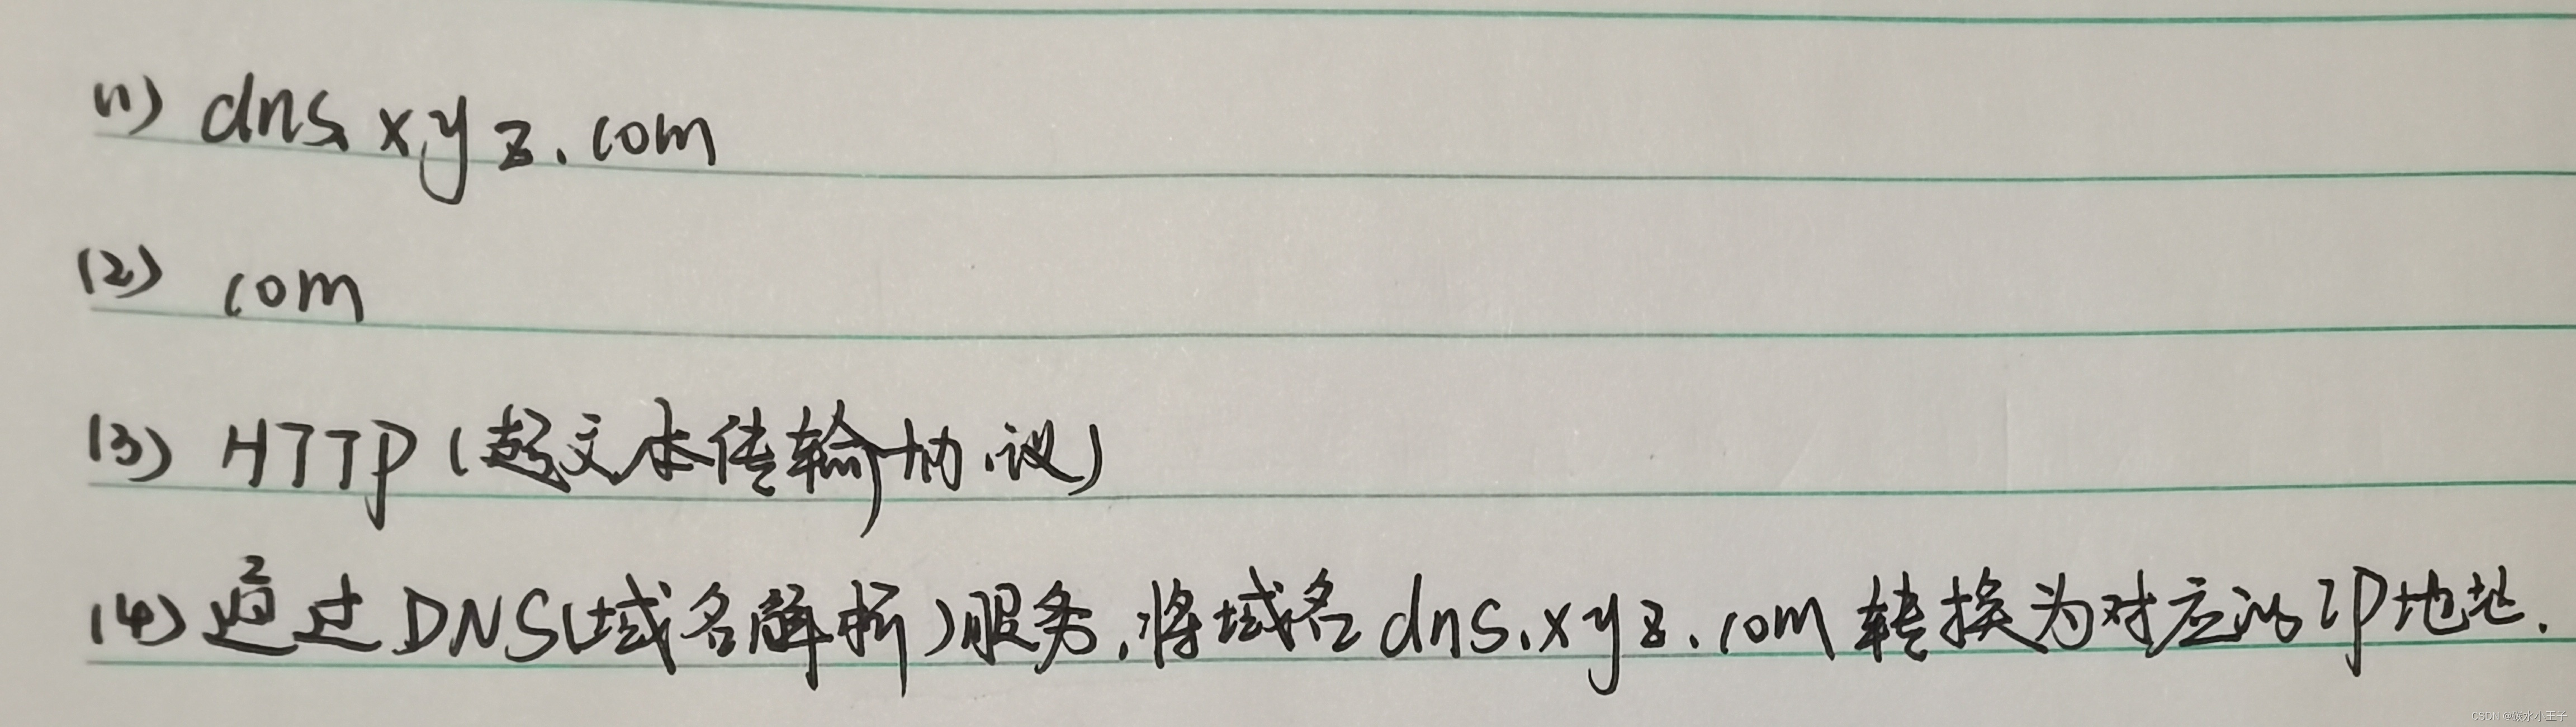 (1) dns.xyz.com
(2) com
(3) HTTP(超文本传输协议)
(4) 通过DNS(域名解析)服务,将域名dns.xyz.com转换为对应的IP地址.